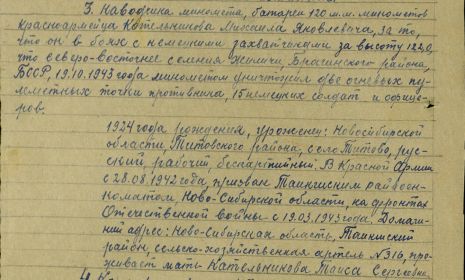 7. Наводчика миномета, батареи 120 м.м. минометов
Красноармейца Котельникова Михаила Яковлевича, за то,
что он в боях с немецкими захватчиками за высоту 122,0,
что северо-восточнее селения Жиличи Брагинского района,
БССР, 19.10.1943 года минометом уничтожил две огневых пу-
леметных точки противника, 15 немецких солдат и офице-
ров.
1924 года рождения, уроженец: Новосибирской
области, Титовского района, село Титово, рус-
ский, рабочий, беспартийный. В Красной Армии
с 28.08.1942 года, призван Таингинским райвоен-
коматом, Ново-Сибирской области, на фронтах
Отечественной войны с 19.03.1943 года. Домаш-
ний адрес: Ново-Сибирская область, Таингинский
район, сельско-хозяйственная артель №316, про-
живает мать Котельникова Таиса Сергеевна.